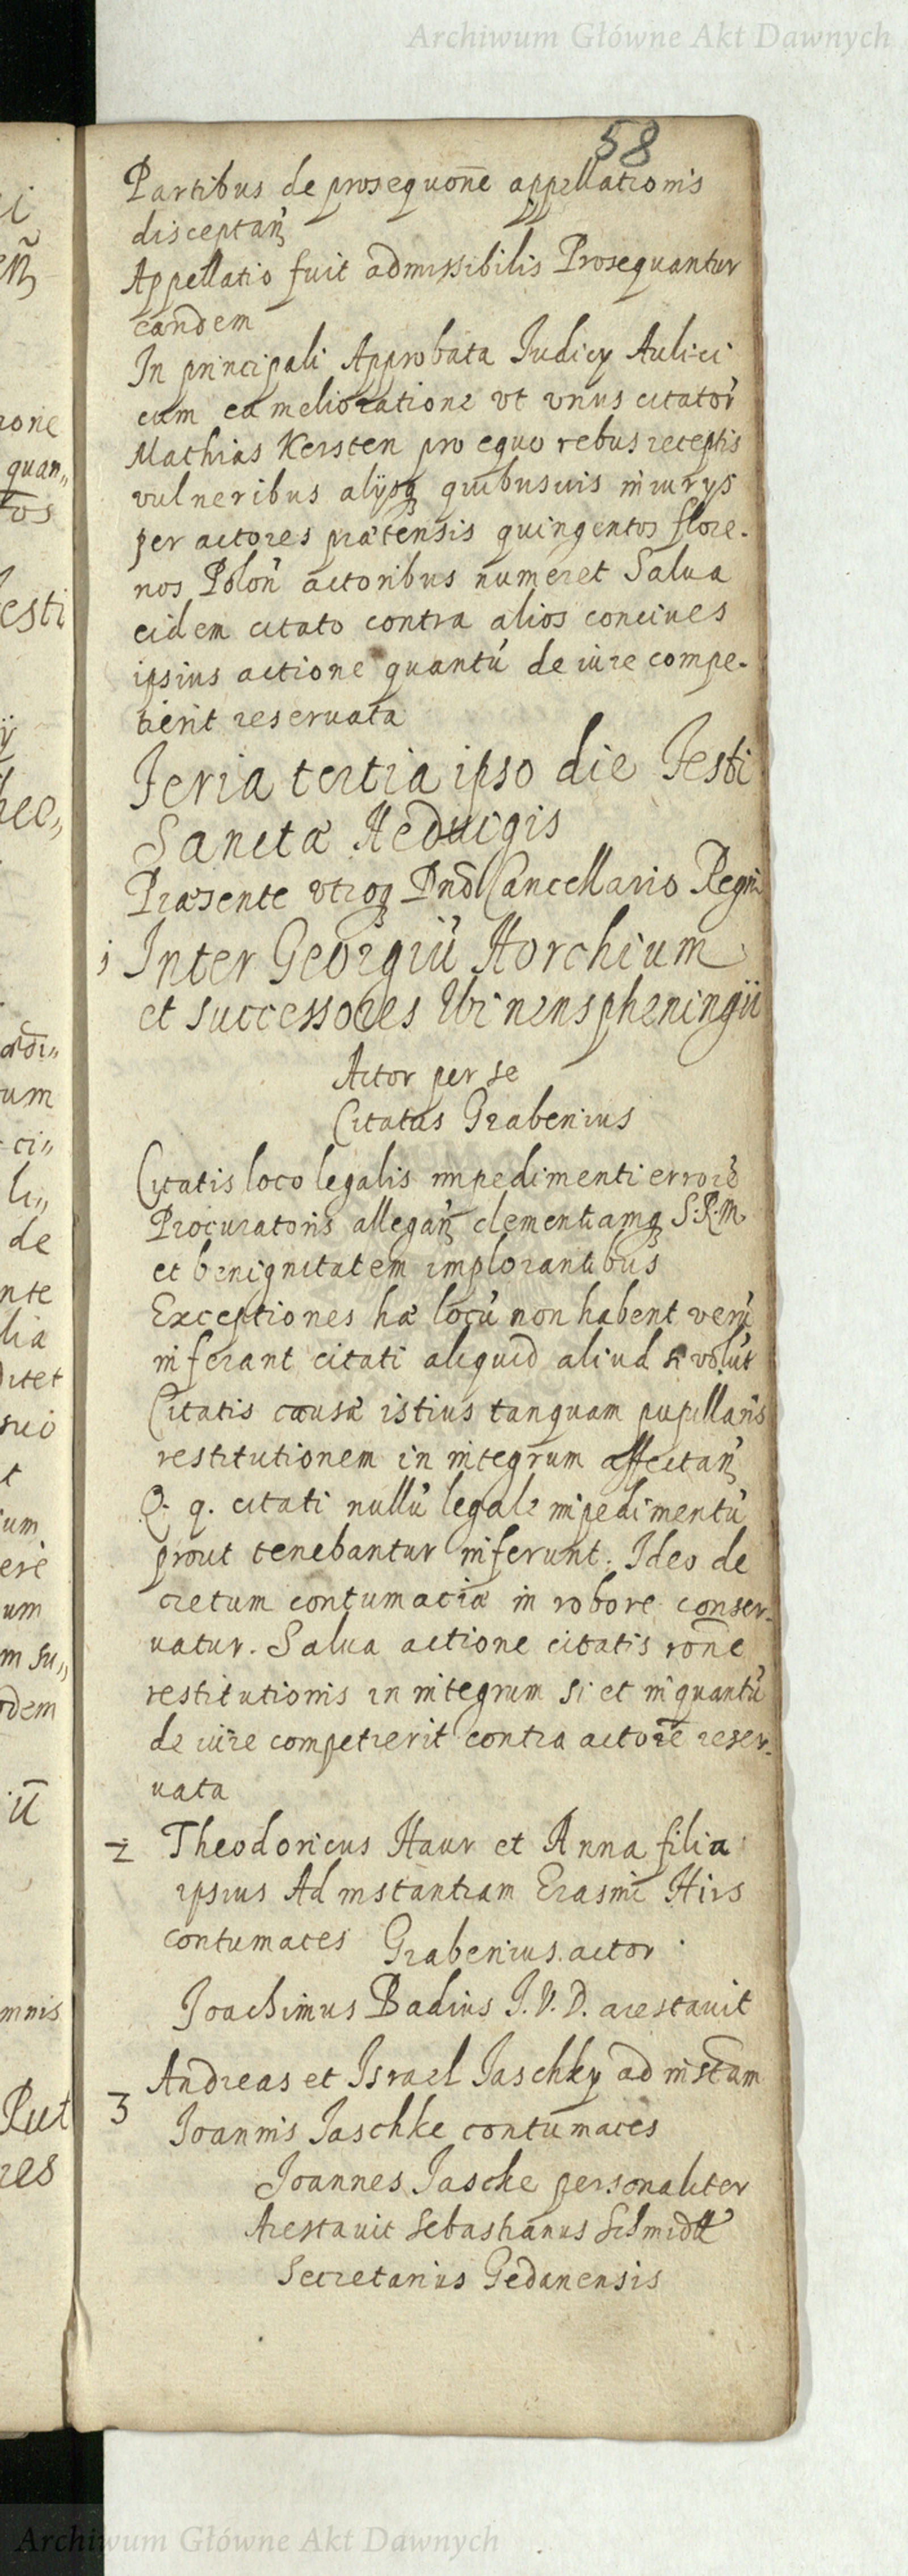 Archiwum Główne Akt Dawnych
58
Partibus de prosequon̄e appellationis
disceptan̄
Appellatio fuit admissibilis Prosequantur
eandem
In principali Approbata Iudicy Aulici
cum ea melioratione vt vnus citator̄
Mathias Kersten pro equo rebus receptis
vulneribus alijsq quibusuis iniurys
per actores prætensis quingentos flore-
nos Polon̄ actoribus numeret Salua
eidem citato contra alios conciues
ipsius actione quantū de iure compe-
tierit reseruata
Feria tertia ipso die Festi
Sanctæ Heduigis
Præsente vtroq Dn̄o Cancellario Regni
1 Inter Georgiū Horchium
et successores Winenspheningii
Actor per se
Citatus Grabenius
Citatis loco legalis impedimenti errorē
Procuratoris allegan̄ clementiamq S. R. M.
et benignitatem implorantibus
Exceptiones hæ locū non habent verū
inferant citati aliquid aliud si volūt
Citatis causæ istius tanquam pupillaris
restitutionem in integrum affectan̄
Q. q. citati nullū legale impedimentū
prout tenebantur inferunt. Ideo de
cretum contumaciæ in robore conser-
uatur. Salua actione citatis ron̄e
restitutionis in integrum si et in quantū
de iure competierit contra actorē reser-
uata
2 Theodoricus Haur et Anna filia
ipsius Ad instantiam Erasmi Hirs
contumaces Grabenius actor
Joachimus Badius J. V. D. arestauit
Andreas et Israel Jaschky ad instam
3 Joannis Jaschke contumaces
Joannes Jascke personaliter
Arestauit Sebastianus Schmidtt
Secretarius Gedanensis
Archiwum Główne Akt Dawnych